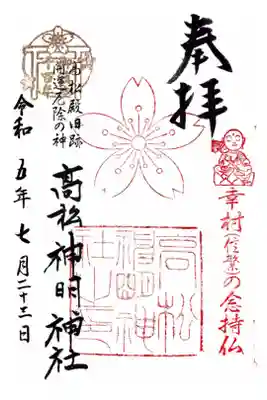 奉拝
幸村信繁の念持仏
高松殿旧跡
開運厄除の神
高松神明神社
高松神明神社之印
令和五年七月二十三日